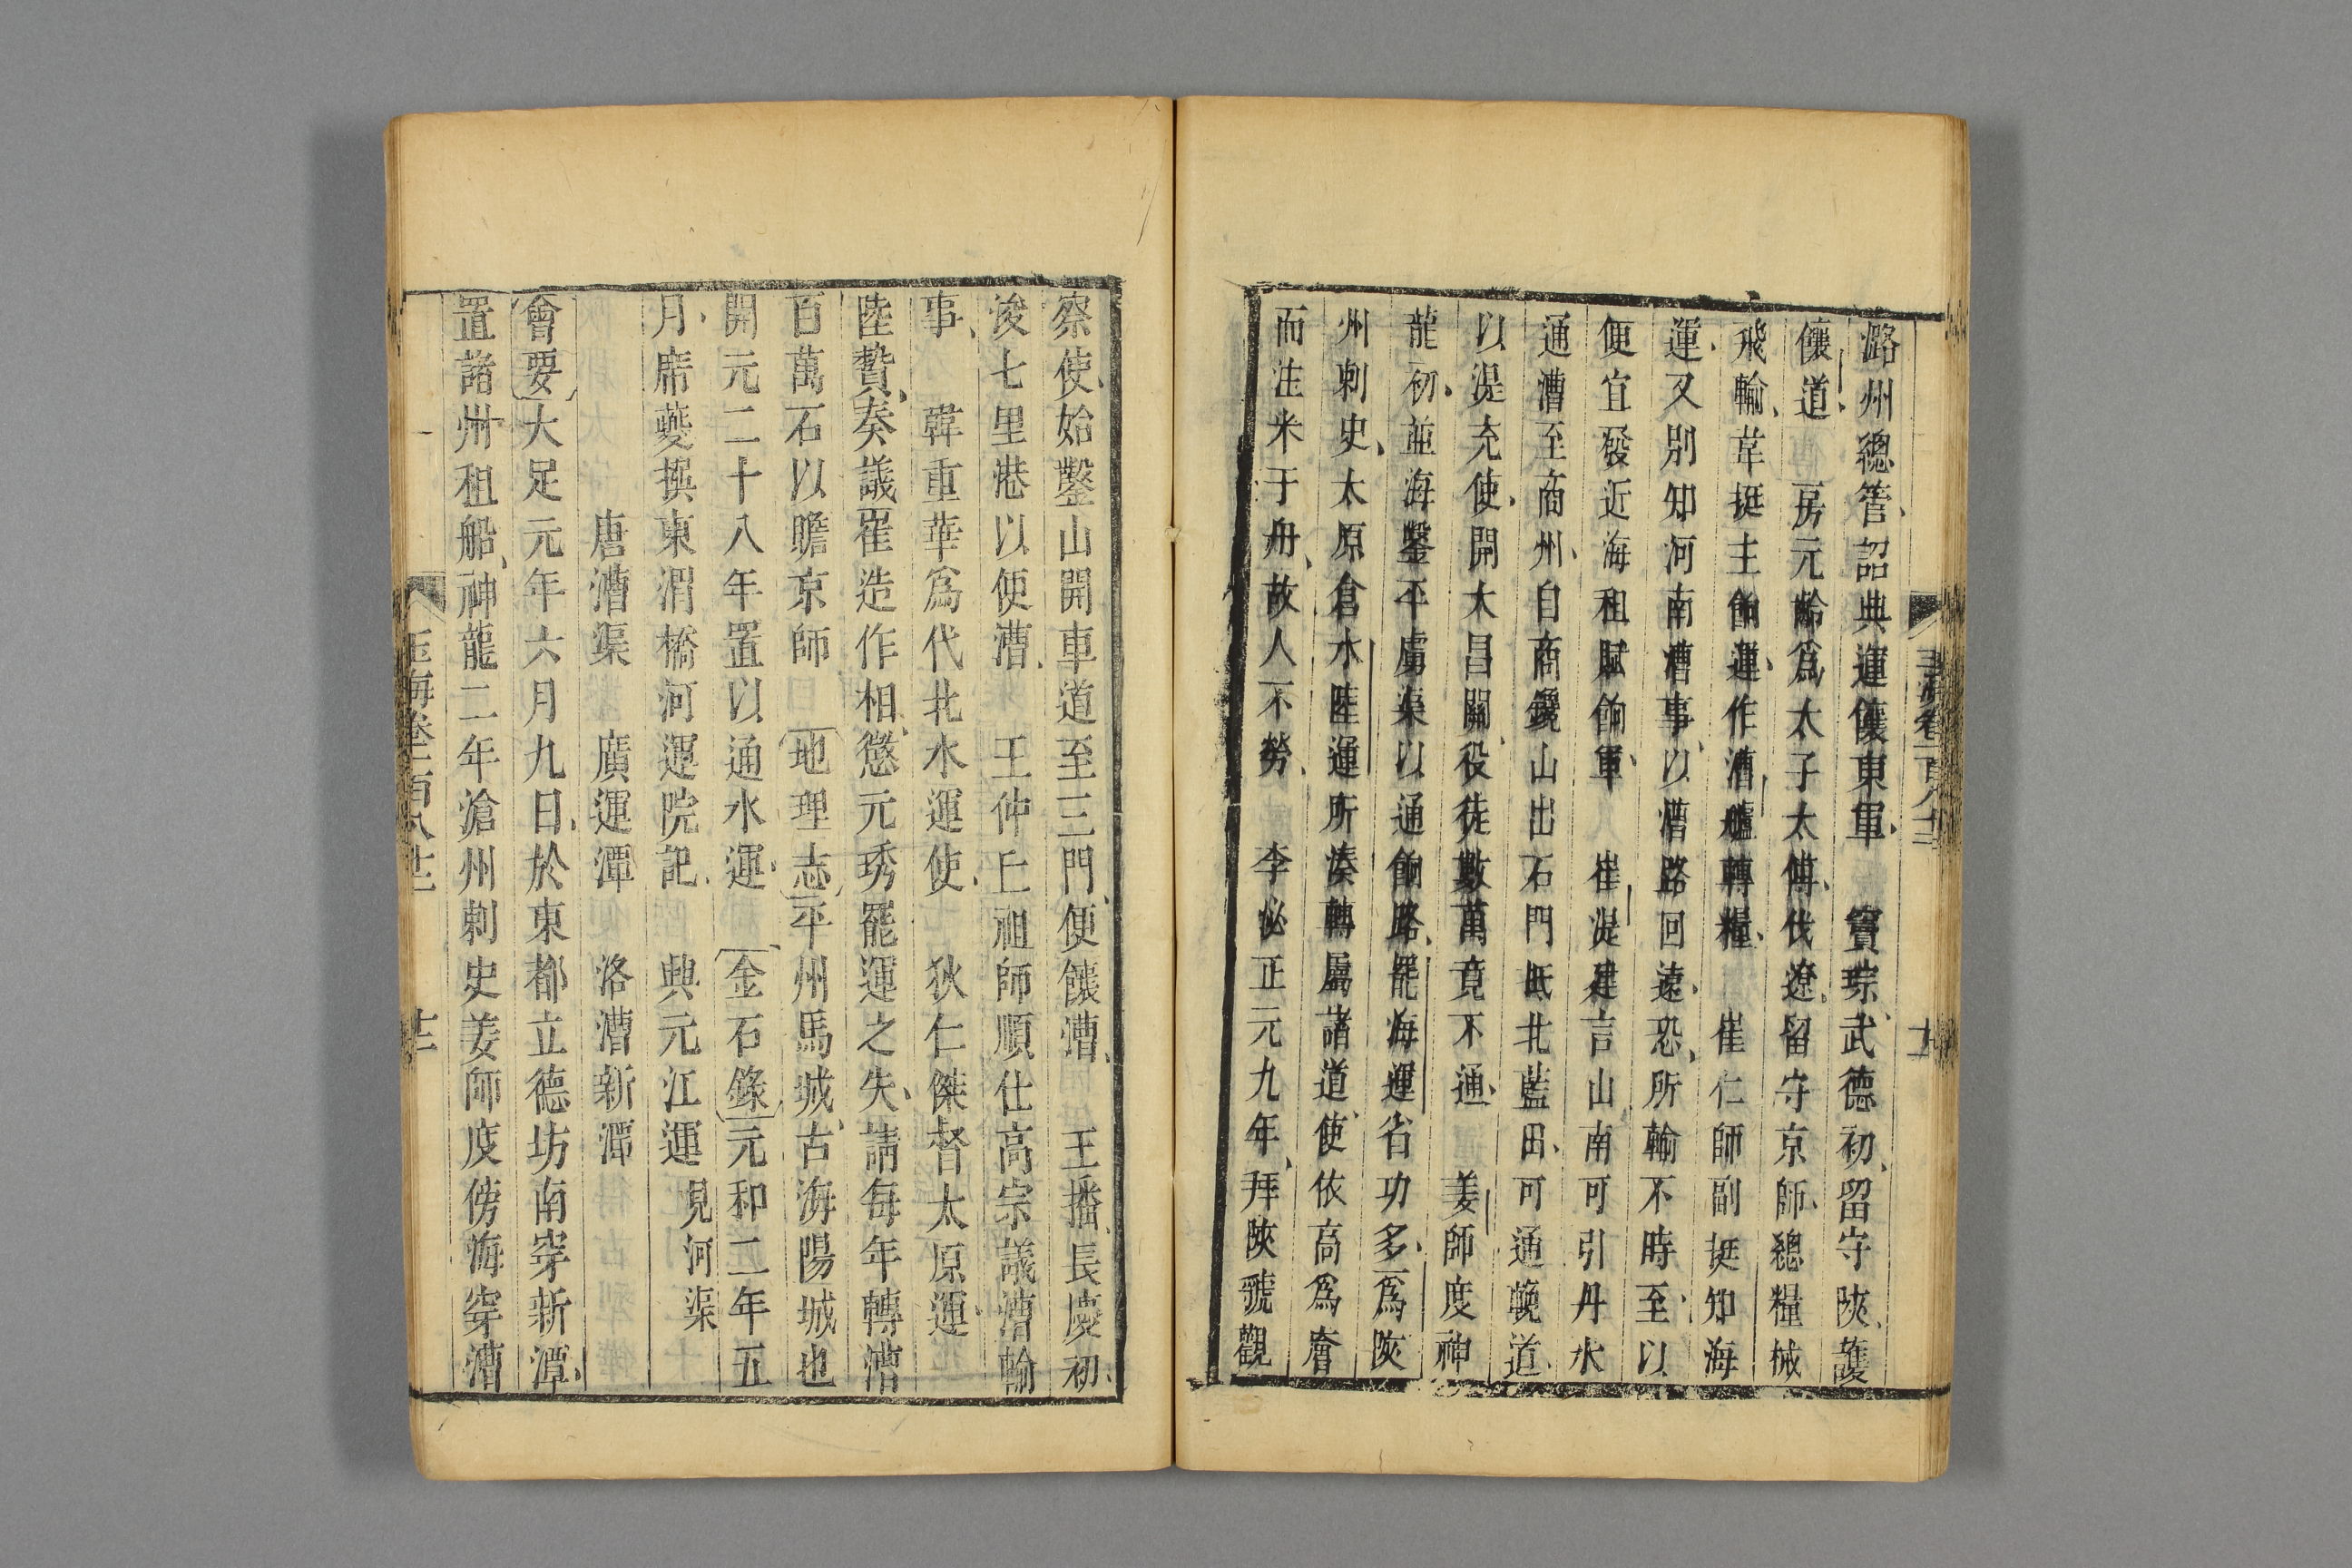 潞州總管詔典運饟東軍　竇琮武德初留守陝護
饟道　房元齡爲太子太傅伐遼留守京師總糧械
飛輸韋挺主餉運作漕艫轉糧　崔仁師副挺知海
運又別知河南漕事以漕路回遠恐所輸不時至以
便宜發近海租賦餉軍　崔湜建言山南可引丹水
通漕至商州自商鑱山出石門抵北藍田可通輓道
以湜充使開大昌關役徒數萬竟不通　姜師度神
龍初並海鑿平虜渠以通餉路罷海運省功多爲陝
州刺史太原倉水陸運所湊轉屬諸道使依高爲廥
而注米于舟故人不勞　李泌正元九年拜陝虢觀
察使始鑿山開車道至三門便饟漕　王播長慶初
浚七里港以便漕　王仲丘祖師順仕高宗議漕輸
事　韓重華爲代北水運使　狄仁傑督太原運
陸贄奏議崔造作相懲元琇罷運之失請每年轉漕
百萬石以贍京師　地理志平州馬城古海陽城也
開元二十八年置以通水運　金石錄元和二年五
月席夔撰東渭橋河運院記　典元江運見河渠
唐漕渠　廣運潭　洛漕新潭
會要大足元年六月九日於東都立德坊南穿新潭
置諸州租船神龍二年滄州刺史姜師度傍海穿漕
玉海卷一百八十二